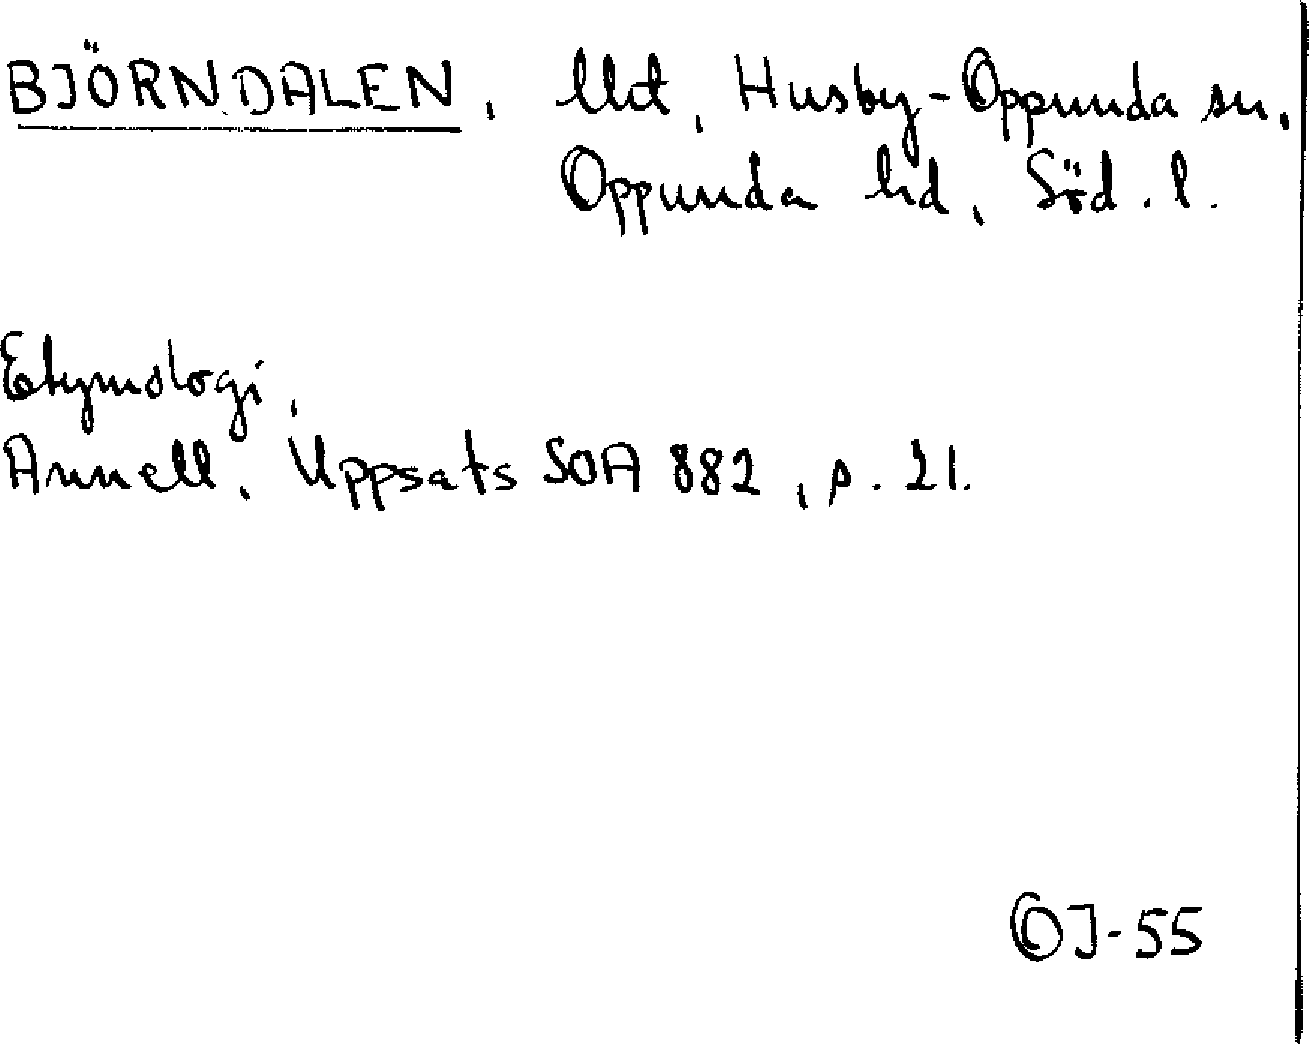 BJÖRNDALEN, Uht, Husby-Oppunda sn,
Oppunda hd, Söd. l.
Etymologi,
Annell, Uppsats SOA 882, s. 21.
OJ-55